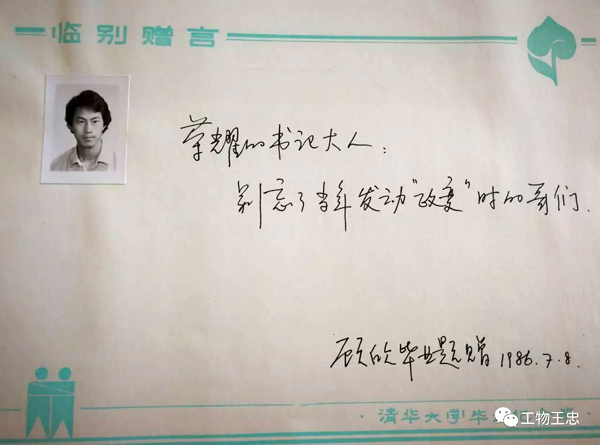 临别赠言
荣耀的书记大人:
别忘了当年发动“政变”时的哥们.
顾欣毕业题赠 1986.7.8.
·清华大学毕
工物王忠